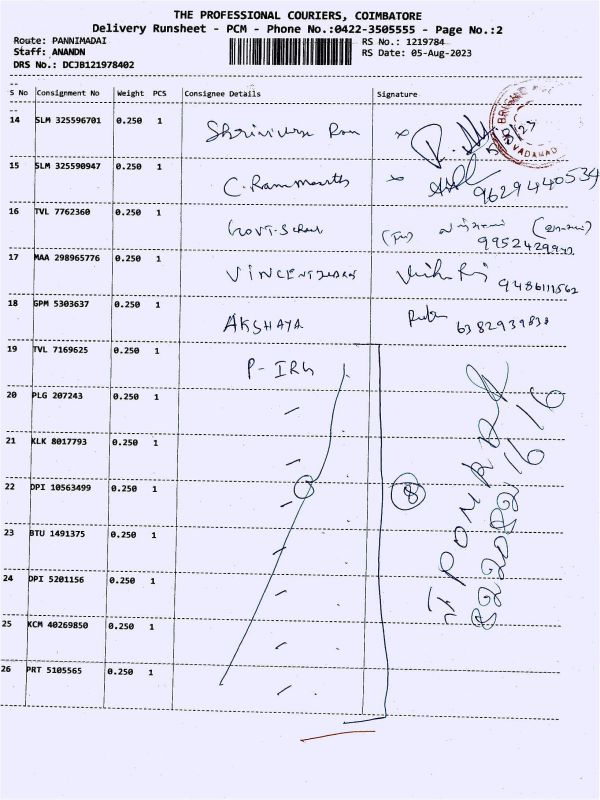 THE PROFESSIONAL COURIERS, COIMBATORE
Delivery Runsheet - PCM - Phone No.:0422-3505555 - Page No.:2
Route: PANNIMADAI
RS No.: 1219784
Staff: ANANDN
RS Date: 05-Aug-2023
DRS No.: DCJB121978402
S No Consignment No Weight PCS Consignee Details Signature
14 SLM 325596701 0.250 1
15 SLM 325590947 0.250 1 9629440534
16 TVL 7762360 0.250 1 9952429940
17 MAA 298965776 0.250 1 VINCENT 9486111562
18 GPM 5303637 0.250 1 AKSHAYA 6382939838
19 TVL 7169625 0.250 1
20 PLG 207243 0.250 1
21 KLK 8017793 0.250 1
22 DPI 10563499 0.250 1 8
23 BTU 1491375 0.250 1
24 DPI 5201156 0.250 1
25 KCM 40269850 0.250 1
26 PRT 5105565 0.250 1